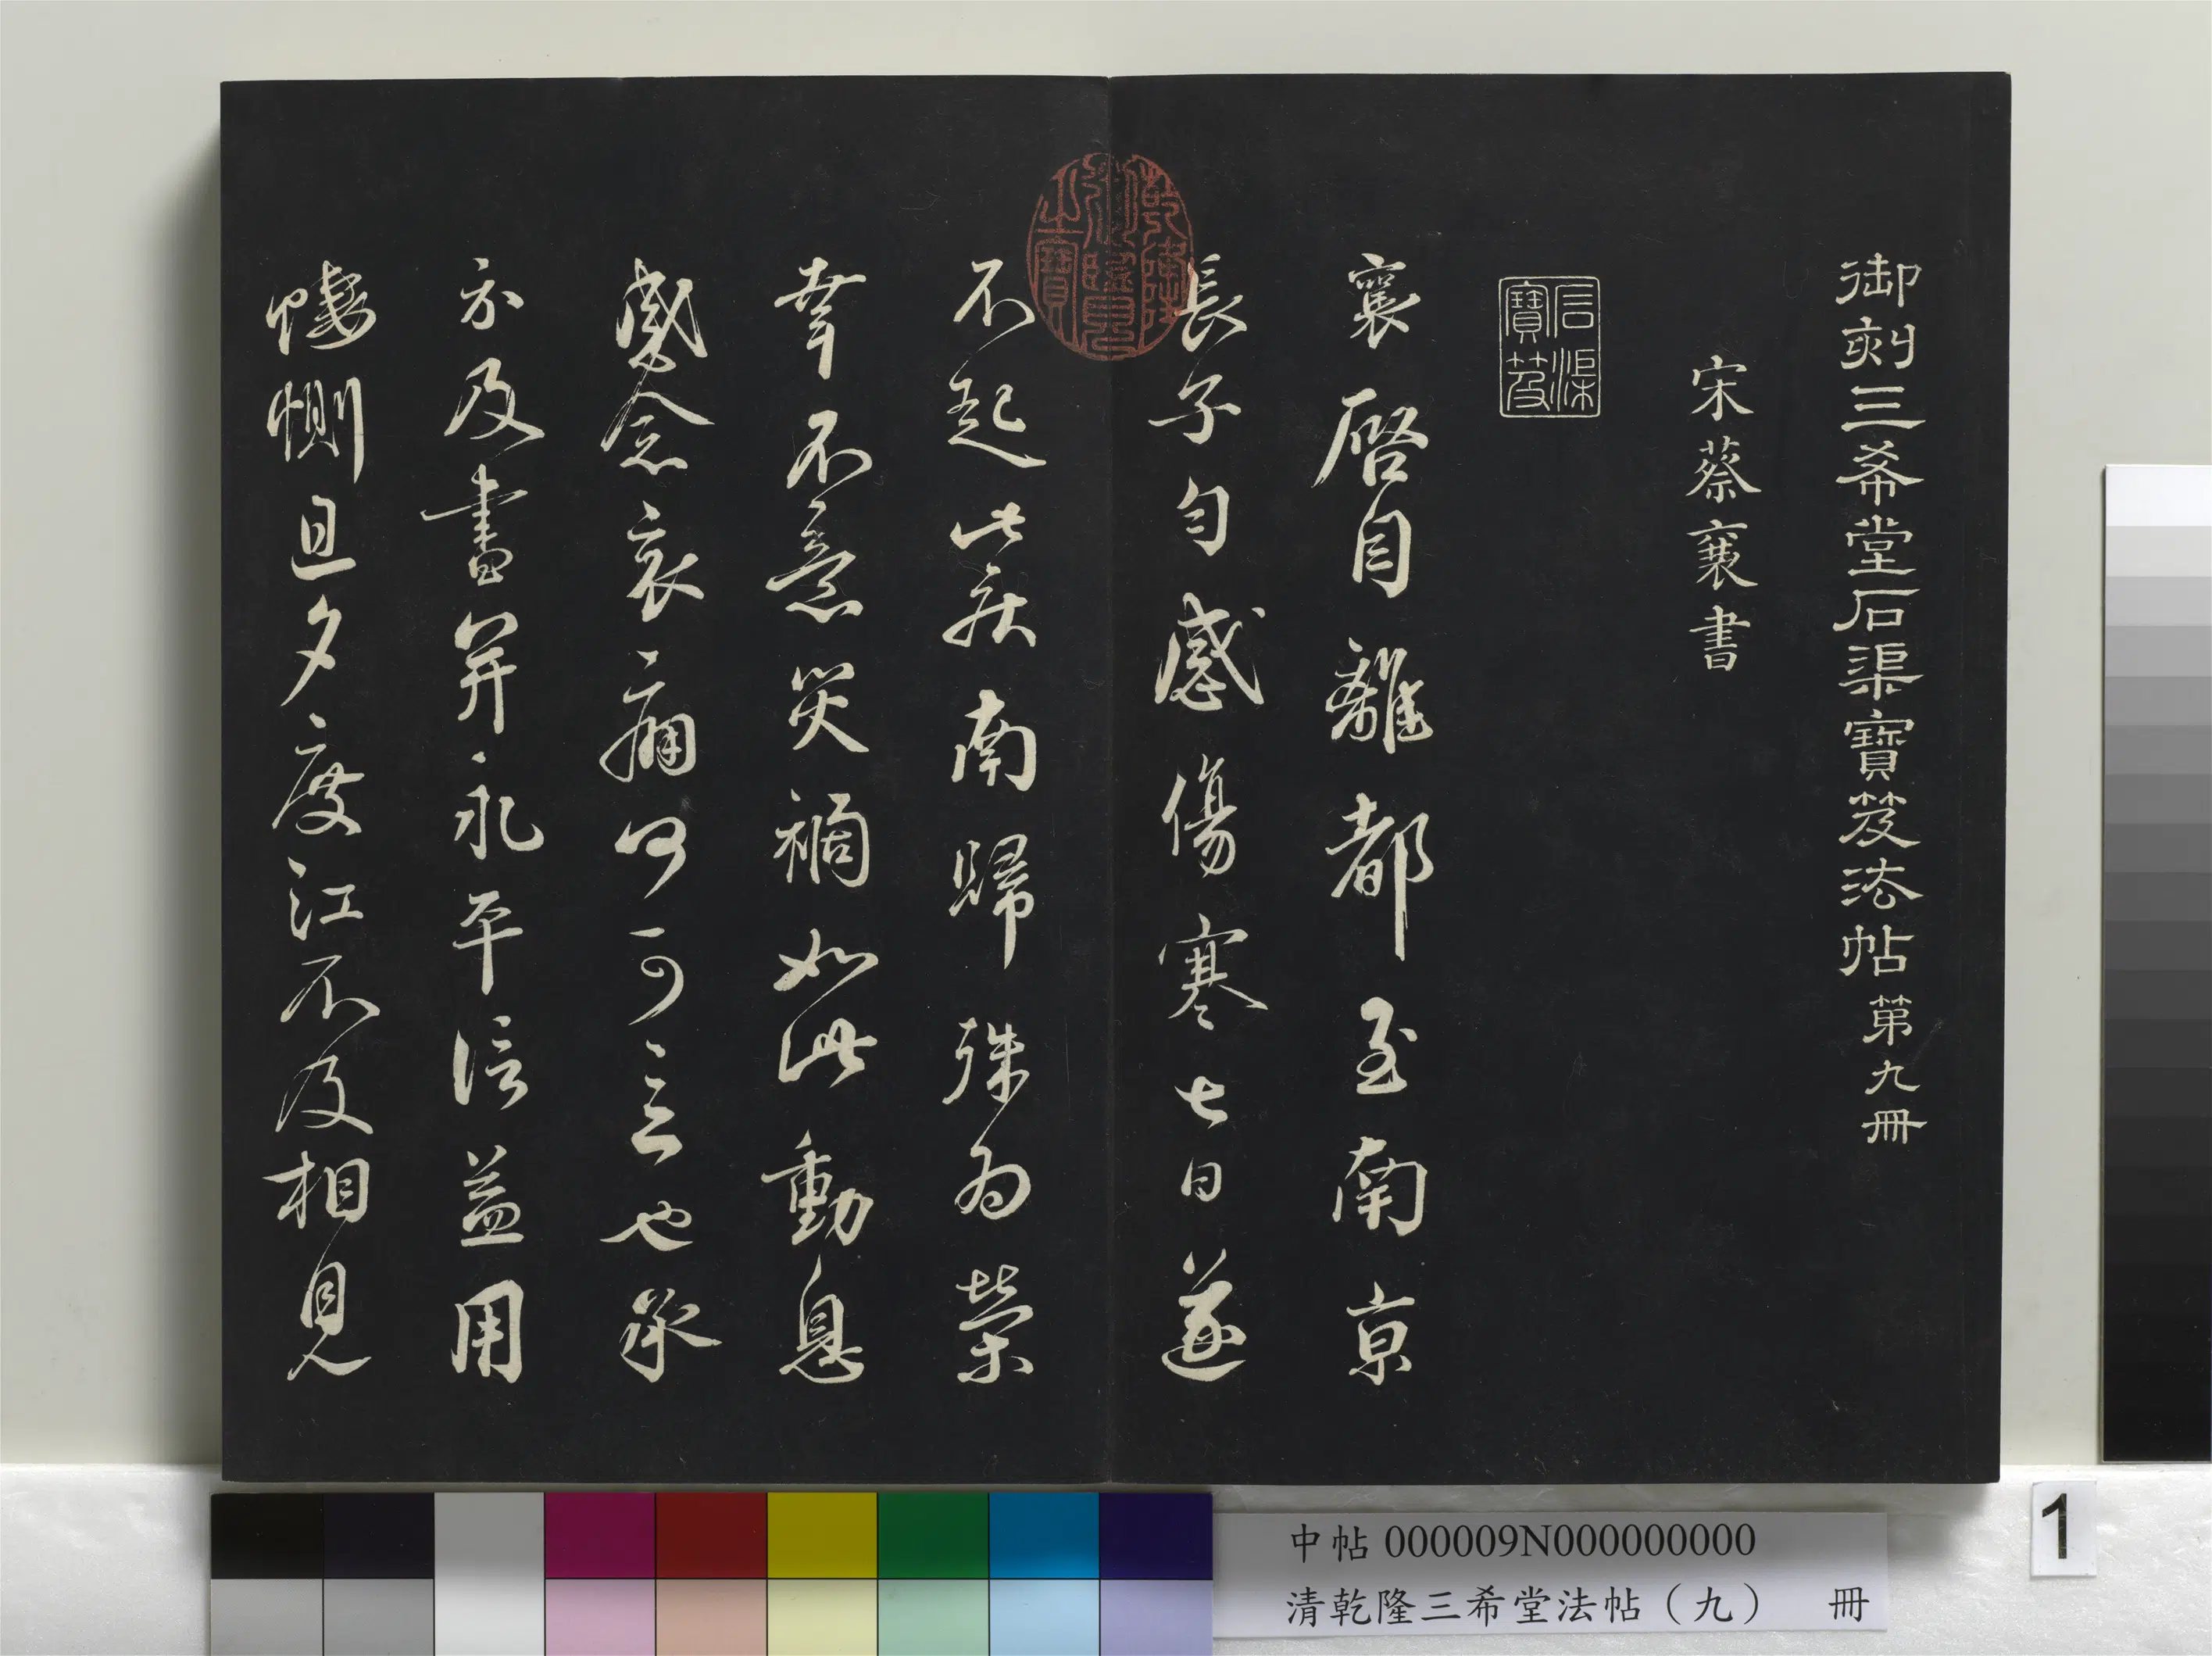 御刻三希堂石渠寶笈法帖第九冊
宋蔡襄書
石渠寶笈
襄啓自離都至南京
長子勻感傷寒七日遂
不起此疾南歸殊為榮
幸不意災禍如此動息
感念哀痛何可言也承
示及書并永平信益用
悽惻旦夕度江不及相見
乾隆御覽之寶
中帖 000009N000000000
清乾隆三希堂法帖（九） 冊
1